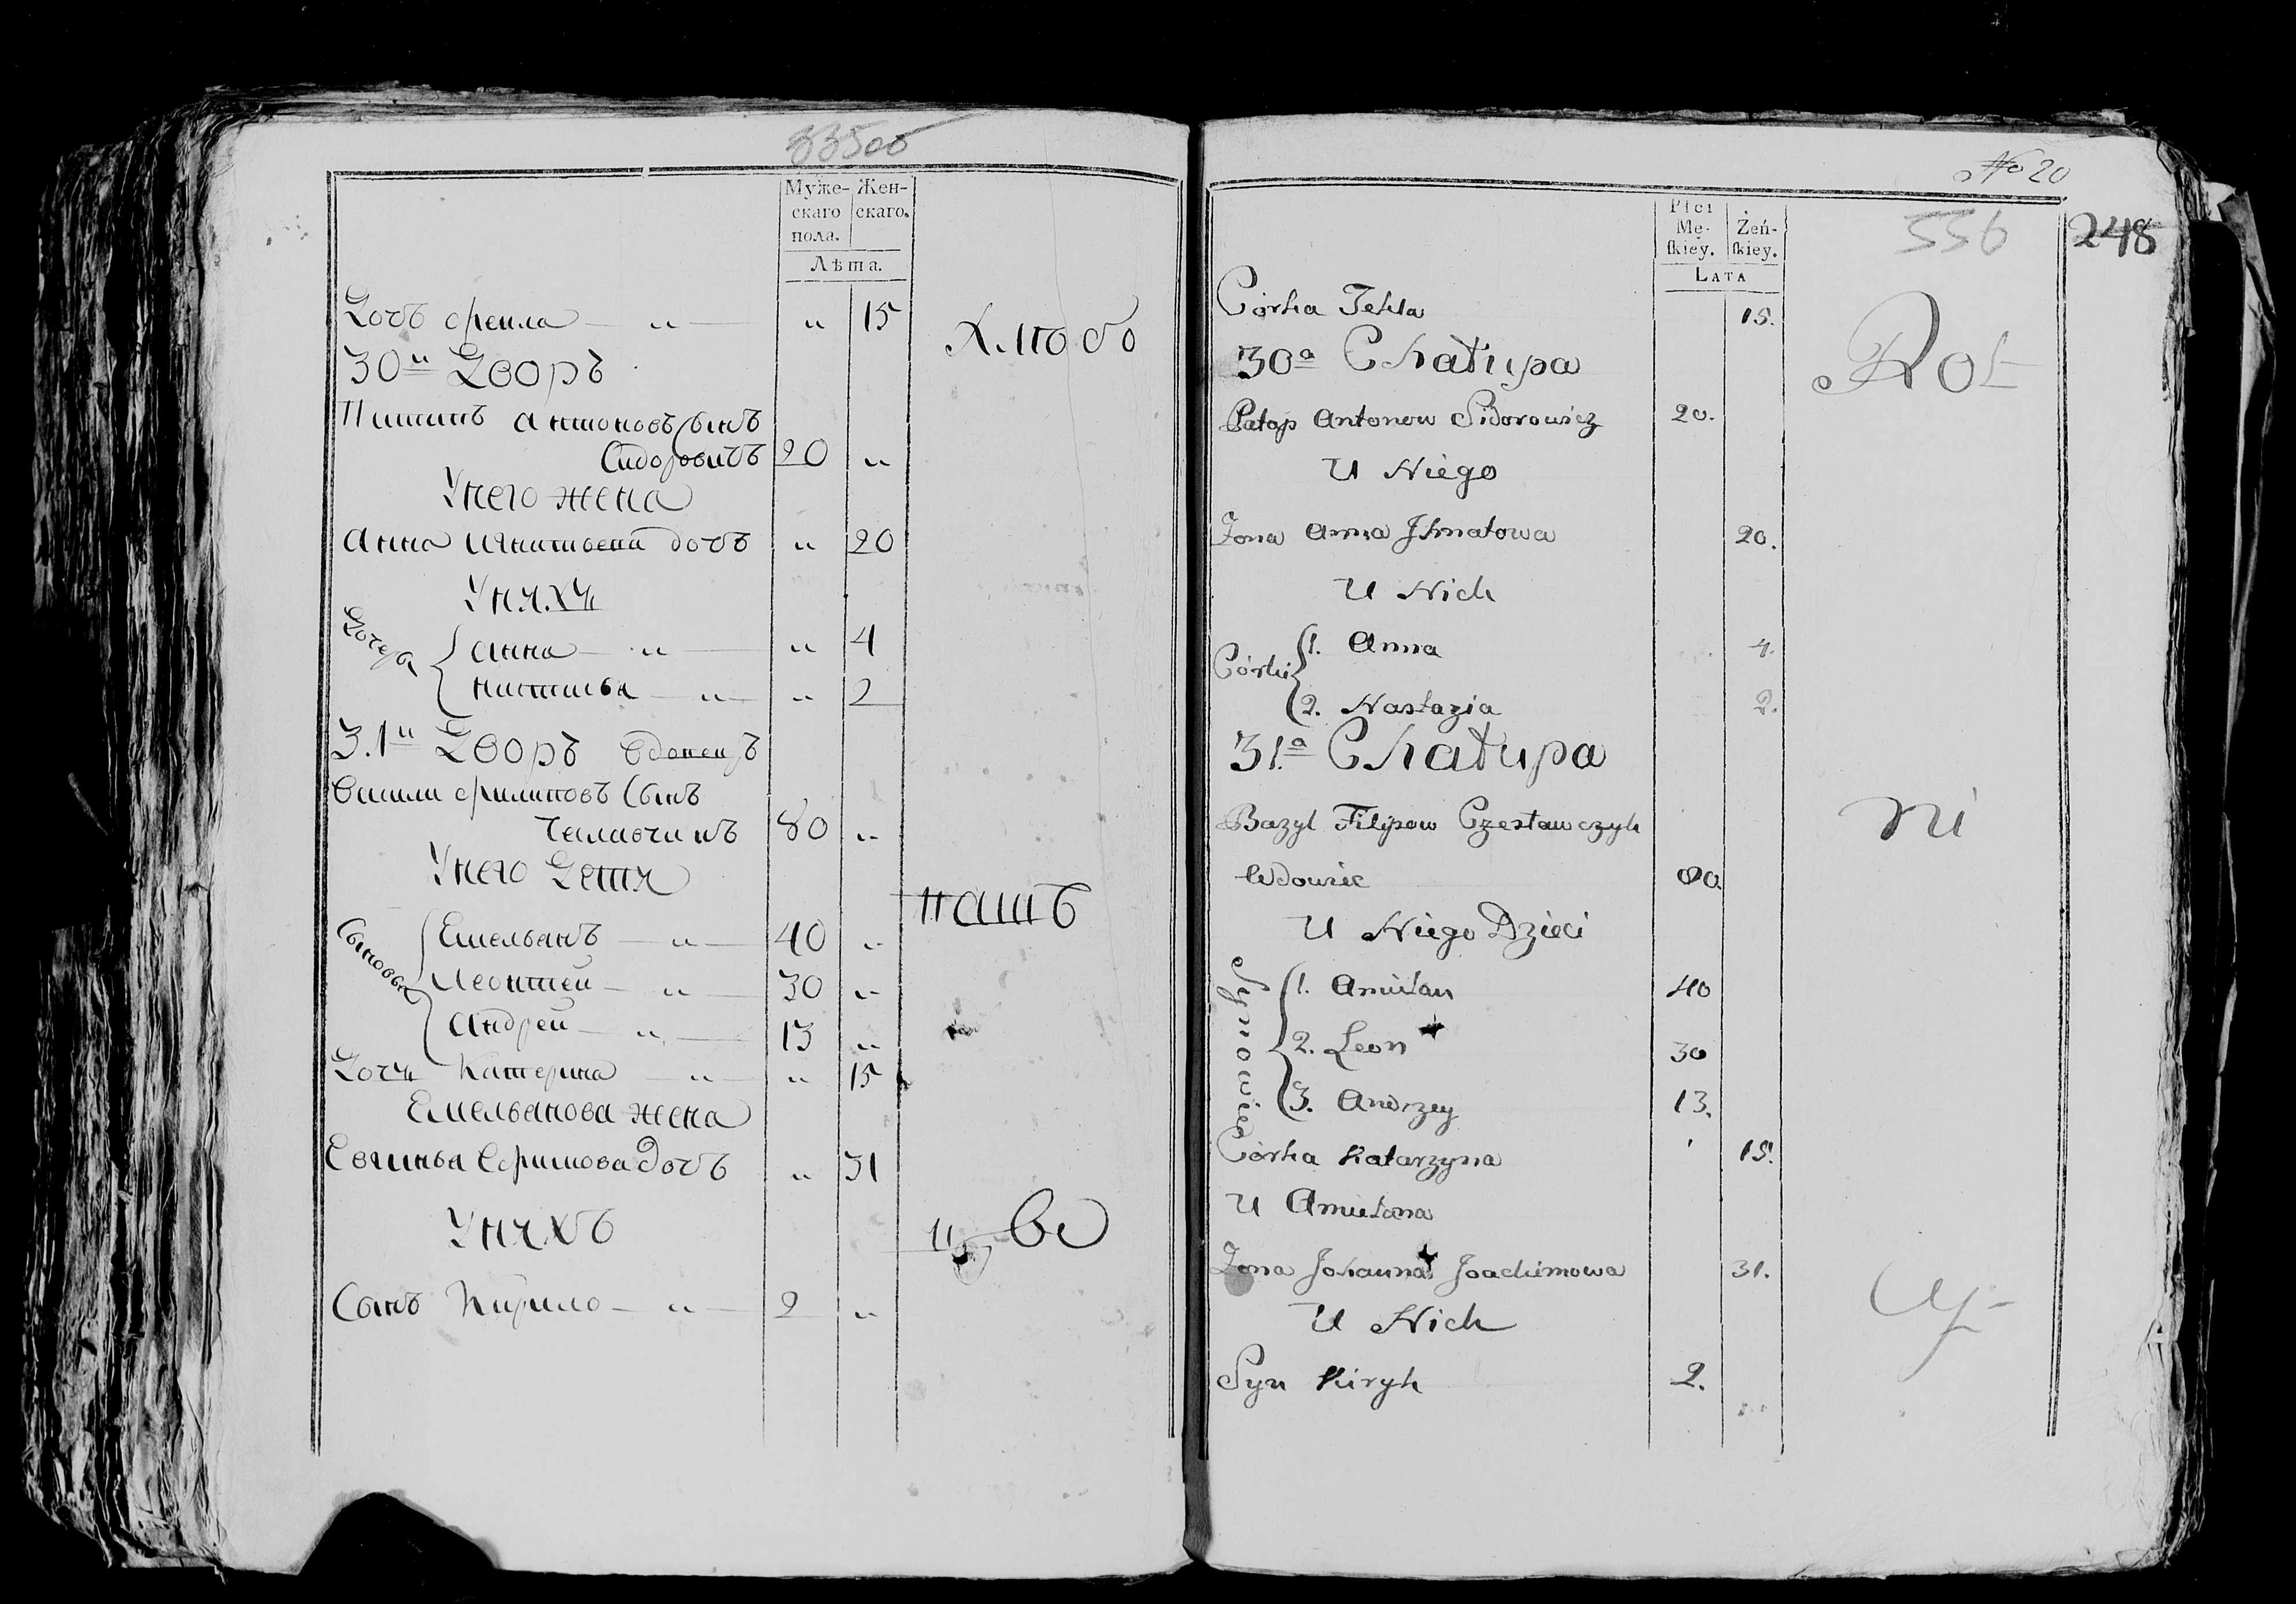 33500
Муже- Жен-
скаго скаго.
пола.
Лѣта.
Дочь Өекла — " — " 15
30й Дворъ
Антоновъ Сынъ
Сидоровичъ 20 "
Унего жена
Анна Игнатьева дочь " 20
Унихъ
Дочери
Анна — " — " 4
Настасья — " — " 2
31й Дворъ вдовецъ
Васили Филиповъ Сынъ
80 "
Унего Дети
Сыновья
Емельянъ — " — 40 "
Леонтей — " — 30 "
Андрей — " — 13 "
Дочь Катерина — " — " 15
Емельянова жена
дочь " 31
Унихъ
Сынъ Кирило — " — 2 "
No 20
556
248
Płci
Mę- Żeń-
skiey. skiey.
LATA
Córka Tekla 15.
30a Chałupa
Patap Antonow Sidorowicz 20.
U Niego
Żona Anna Ihnatowa 20.
U Nich
Córki
1. Anna 4.
2. Nastazia 2.
31a Chałupa
Bazyl Filipow Czesławczyk
Wdowiec 80
U Niego Dzieci
Synowie
1. Amielan 40
2. Leon 30
3. Andrzey 13.
Córka Katarzyna 15.
U Amielana
Żona Johanna Joachimowa 31.
U Nich
Syn Kiryk 2.